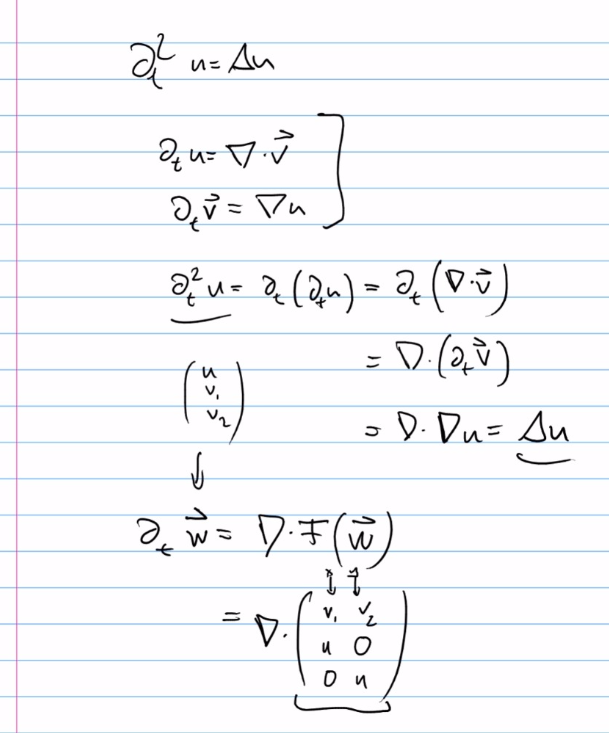 ∂ₜ² u = Δu
∂ₜ u = ∇·v⃗
∂ₜ v⃗ = ∇u
∂ₜ² u = ∂ₜ (∂ₜ u) = ∂ₜ (∇·v⃗)
= ∇·(∂ₜ v⃗)
= ∇·∇u = Δu
(u
v₁
v₂)
↓
∂ₜ w⃗ = ∇·F(w⃗)
↕ ↕
= ∇·(v₁ v₂
u 0
0 u)